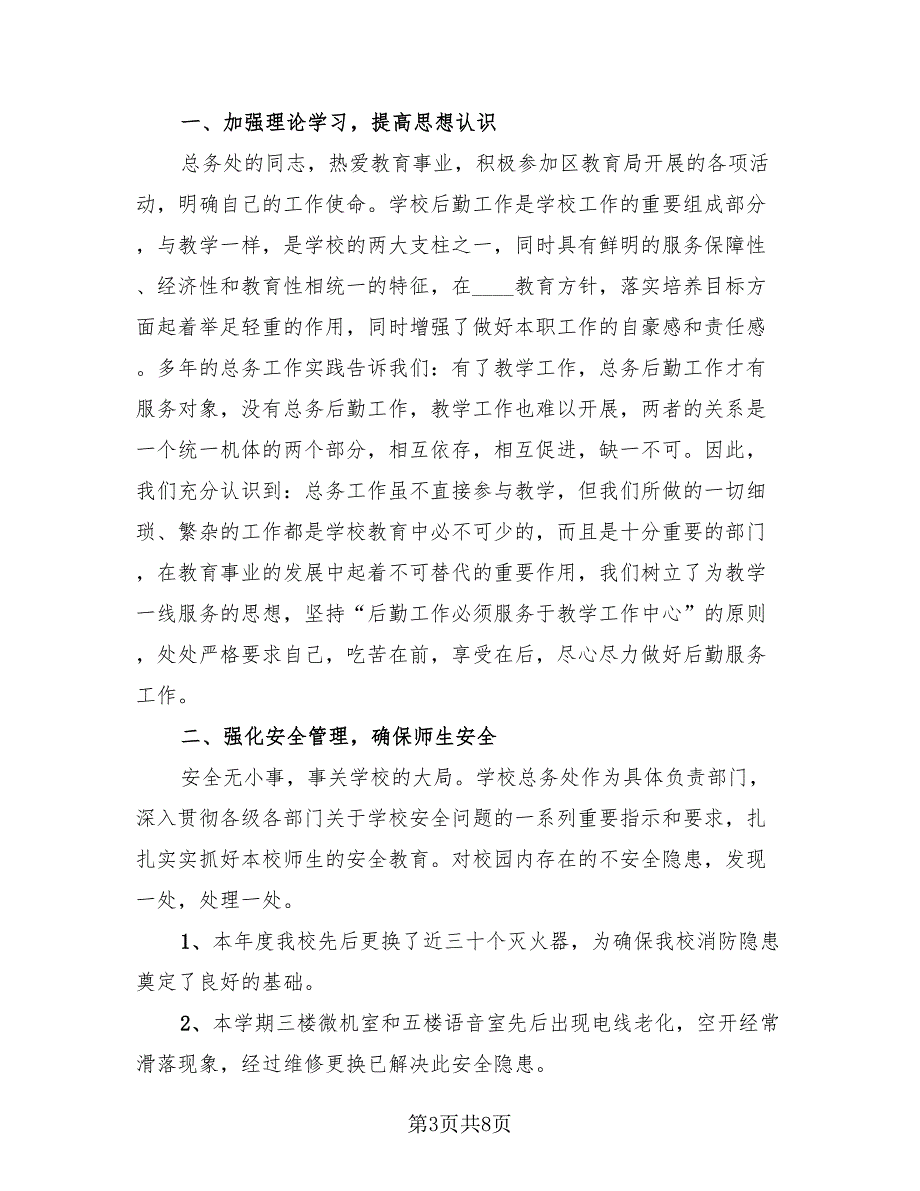 一、加强理论学习，提高思想认识
总务处的同志，热爱教育事业，积极参加区教育局开展的各项活
动，明确自己的工作使命。学校后勤工作是学校工作的重要组成部分
，与教学一样，是学校的两大支柱之一，同时具有鲜明的服务保障性
、经济性和教育性相统一的特征，在____教育方针，落实培养目标方
面起着举足轻重的作用，同时增强了做好本职工作的自豪感和责任感
。多年的总务工作实践告诉我们：有了教学工作，总务后勤工作才有
服务对象，没有总务后勤工作，教学工作也难以开展，两者的关系是
一个统一机体的两个部分，相互依存，相互促进，缺一不可。因此，
我们充分认识到：总务工作虽不直接参与教学，但我们所做的一切细
琐、繁杂的工作都是学校教育中必不可少的，而且是十分重要的部门
，在教育事业的发展中起着不可替代的重要作用，我们树立了为教学
一线服务的思想，坚持“后勤工作必须服务于教学工作中心”的原则
，处处严格要求自己，吃苦在前，享受在后，尽心尽力做好后勤服务
工作。
二、强化安全管理，确保师生安全
安全无小事，事关学校的大局。学校总务处作为具体负责部门，
深入贯彻各级各部门关于学校安全问题的一系列重要指示和要求，扎
扎实实抓好本校师生的安全教育。对校园内存在的不安全隐患，发现
一处，处理一处。
1、本年度我校先后更换了近三十个灭火器，为确保我校消防隐患
奠定了良好的基础。
2、本学期三楼微机室和五楼语音室先后出现电线老化，空开经常
滑落现象，经过维修更换已解决此安全隐患。
第3页共8页